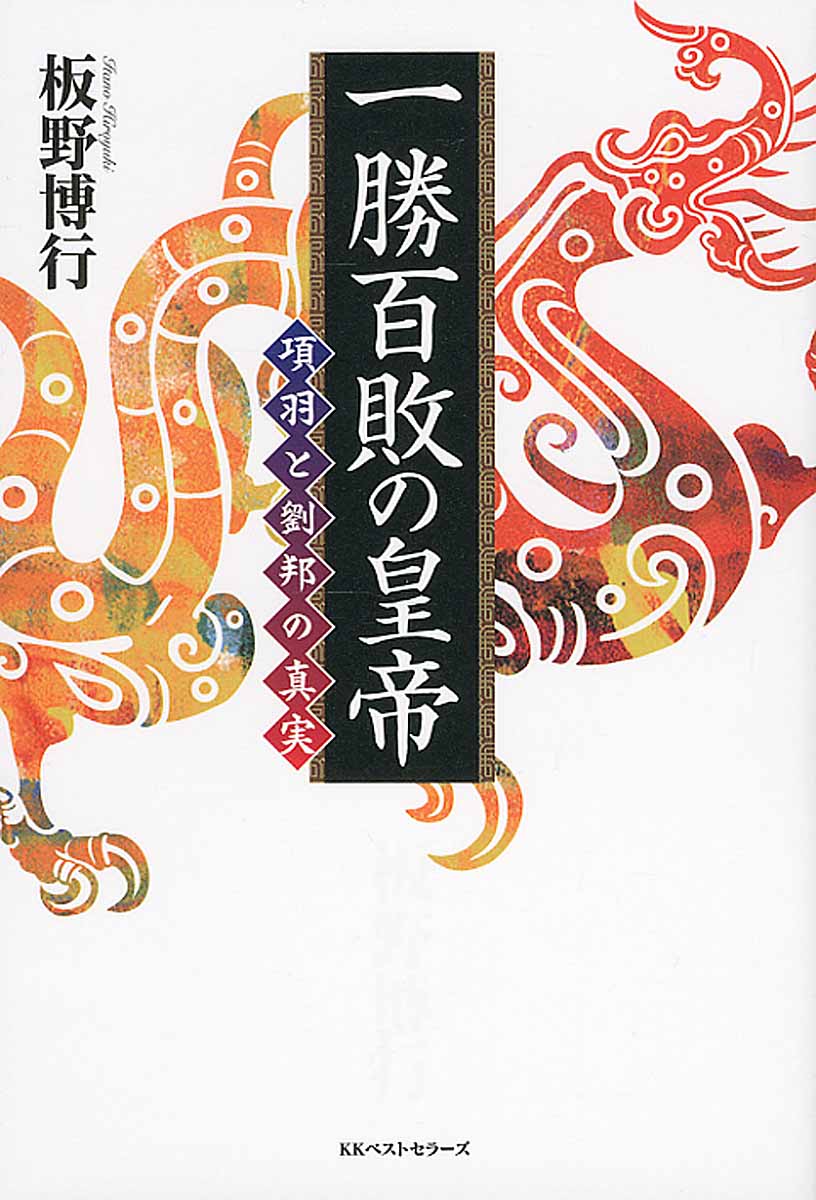 一勝百敗の皇帝
項羽と劉邦の真実
板野博行
Itano Hiroyuki
KKベストセラーズ